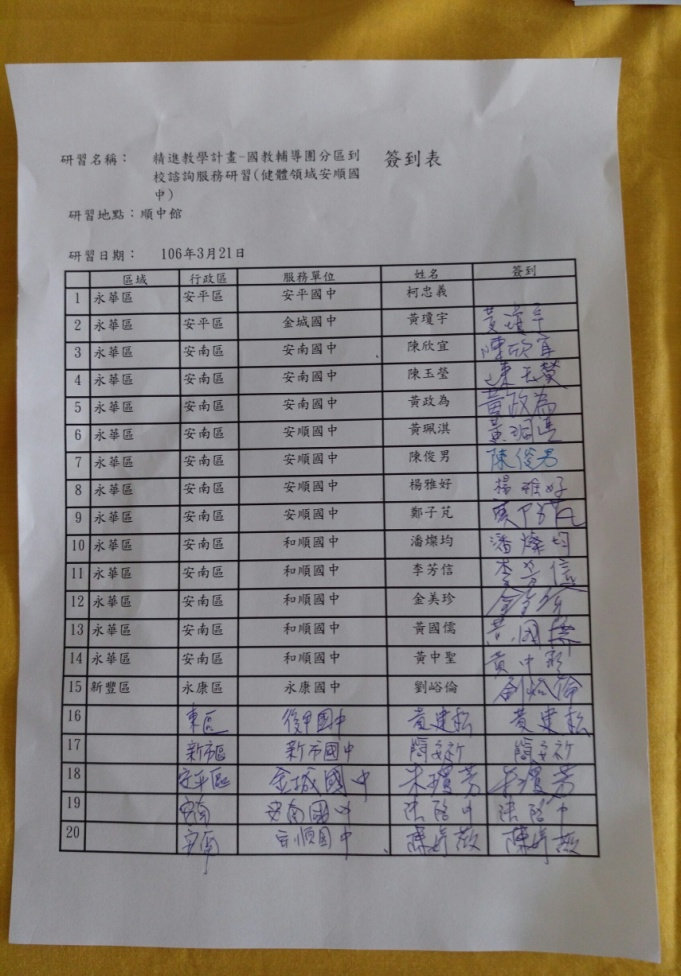 研習名稱： 精進教學計畫-國教輔導團分區到 簽到表
校諮詢服務研習(健體領域安順國
中)
研習地點：順中館
研習日期： 106年3月21日
區域 行政區 服務單位 姓名 簽到
1 永華區 安平區 安平國中 柯忠義
2 永華區 安平區 金城國中 黃瓊宇 黃瓊宇
3 永華區 安南區 安南國中 陳欣宜 陳欣宜
4 永華區 安南區 安南國中 陳玉瑩 陳玉瑩
5 永華區 安南區 安南國中 黃政為 黃政為
6 永華區 安南區 安順國中 黃珮淇 黃珮淇
7 永華區 安南區 安順國中 陳俊男 陳俊男
8 永華區 安南區 安順國中 楊雅妤 楊雅妤
9 永華區 安南區 安順國中 鄭子芃
10 永華區 安南區 和順國中 潘燦均 潘燦均
11 永華區 安南區 和順國中 李芳信 李芳信
12 永華區 安南區 和順國中 金美珍 金美珍
13 永華區 安南區 和順國中 黃國儒 黃國儒
14 永華區 安南區 和順國中 黃中聖 黃中聖
15 新豐區 永康區 永康國中 劉峪倫 劉峪倫
16 東區 後甲國中 黃建松 黃建松
17 新市區 新市國中
18 安平區 金城國中
19 安南 安南國中
20 安南 安順國中